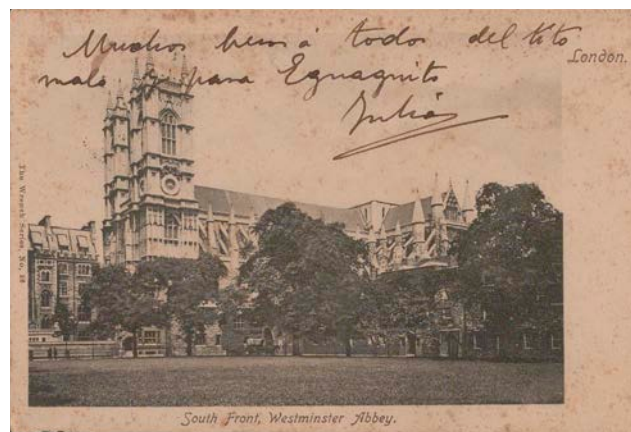 Muchos bens á todos del tito
malo y para Eguaguito
Julián
London.
The Wrench Series, No. 28
South Front, Westminster Abbey.